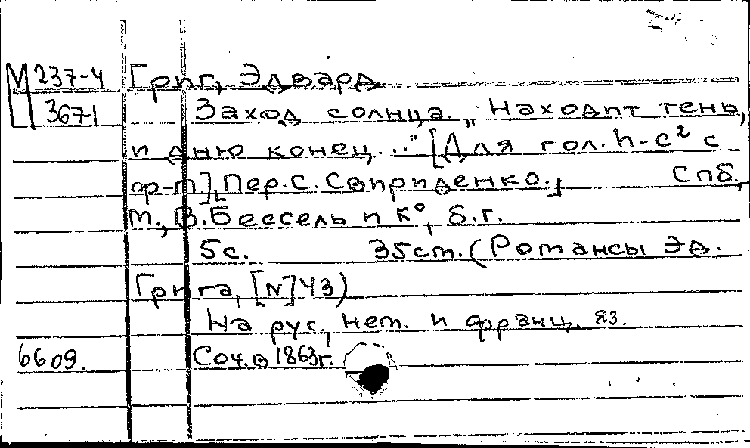 М 237-4 Григ, Эдвард
3671 Заход солнца. „Находит тень,
и дню конец..." [Для гол. h-c² с
ф-п]. Пер. С. Свириденко. Спб,
М., В. Бессель и К⁰, б.г.
5 с. 35 ст. (Романсы Эд.
Грига, [N] 43)
На рус., нем. и франц. яз.
6609. Соч. в 1863 г.